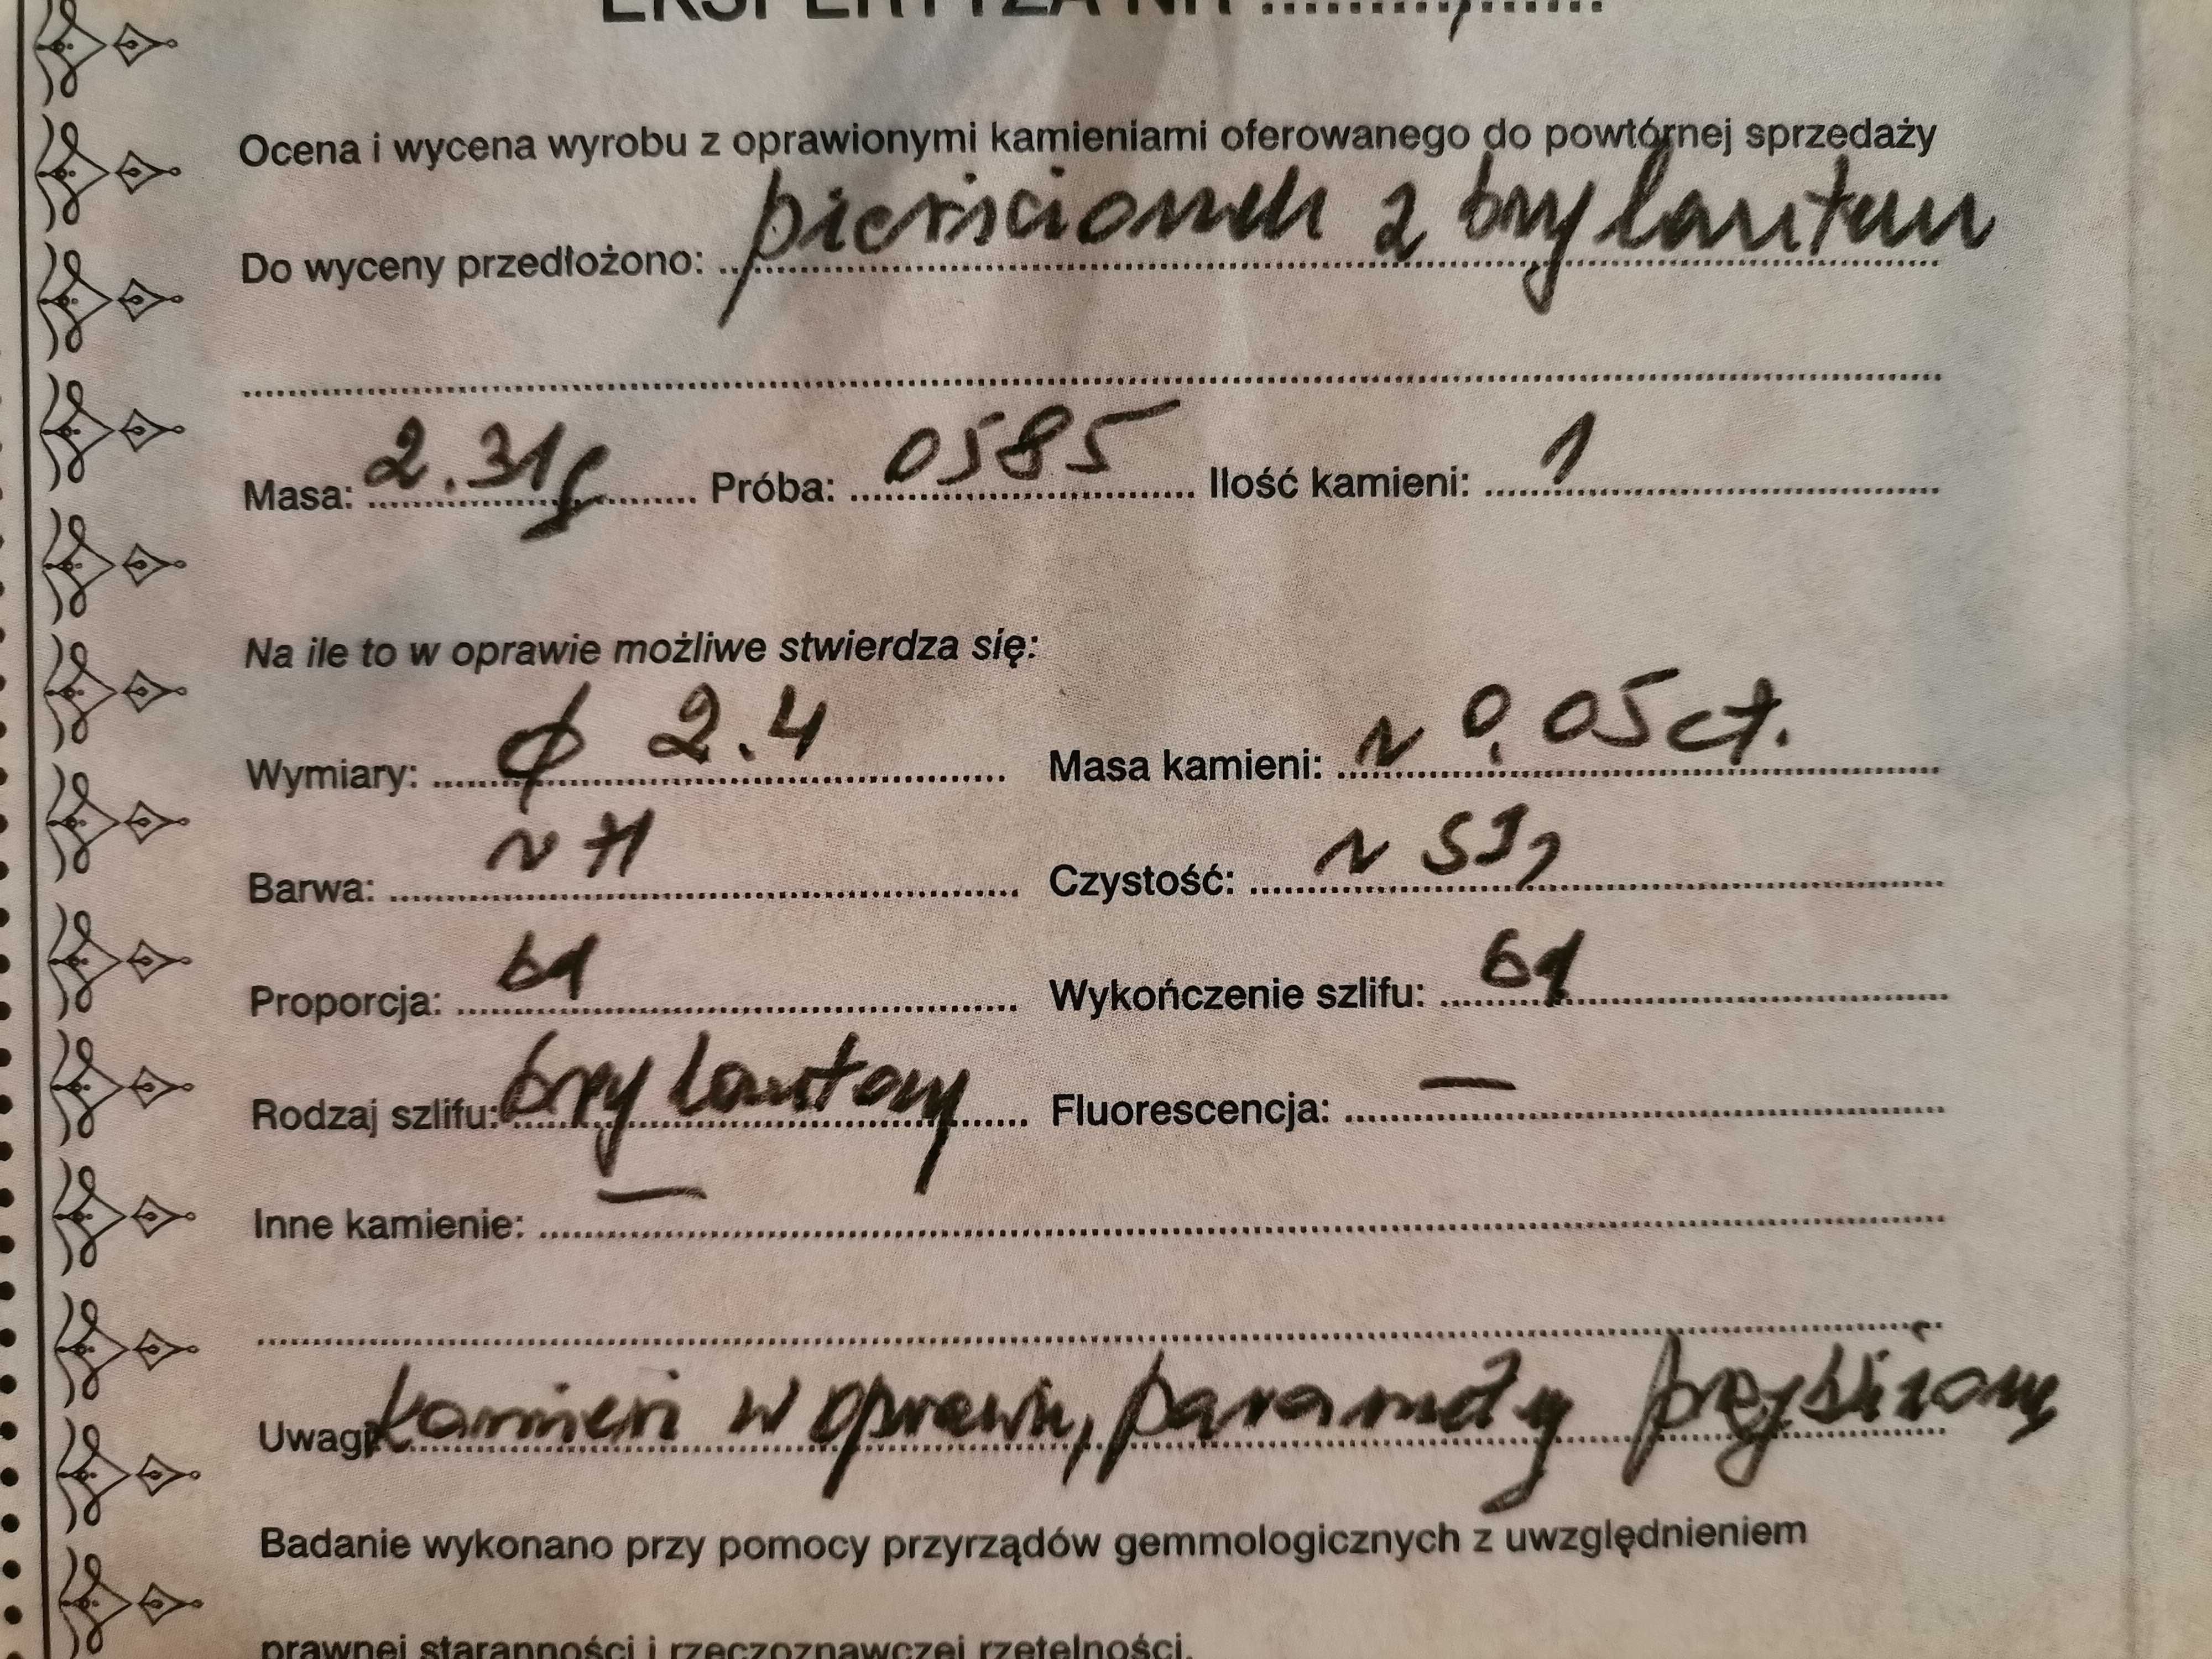 EKSPERTYZA NR
Ocena i wycena wyrobu z oprawionymi kamieniami oferowanego do powtórnej sprzedaży
Do wyceny przedłożono: pierścionek z brylantem
Masa: 2.31g Próba: 0585 Ilość kamieni: 1
Na ile to w oprawie możliwe stwierdza się:
Wymiary: ϕ 2.4 Masa kamieni: ~ 0,05 ct.
Barwa: ~ H Czystość: ~ SI1
Proporcja: bd Wykończenie szlifu: bd
Rodzaj szlifu: brylantowy Fluorescencja: —
Inne kamienie: —
Uwagi: Kamień w oprawie, parametry przybliżone
Badanie wykonano przy pomocy przyrządów gemmologicznych z uwzględnieniem
prawnej staranności i rzeczoznawczej rzetelności.